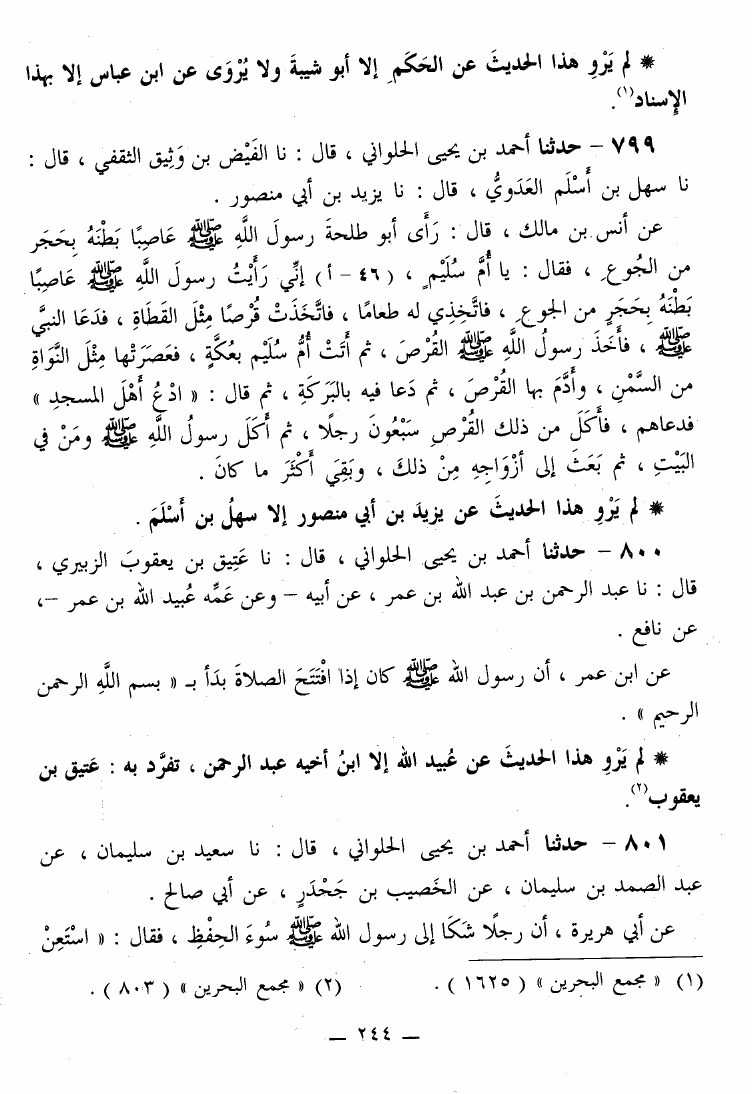 * لم يَرْوِ هذا الحديثَ عن الحَكَمِ إلا أبو شيبةَ ولا يُرْوَى عن ابن عباس إلا بهذا
الإسناد(١).
٧٩٩ – حدثنا أحمد بن يحيى الحلواني ، قال : نا الفَيْض بن وَثِيق الثقفي ، قال :
نا سهل بن أَسْلَم العَدَويُّ ، قال : نا يزيد بن أبي منصور .
عن أنس بن مالك ، قال : رَأَى أبو طلحةَ رسولَ اللَّهِ ﷺ عَاصِبًا بَطْنَهُ بِحَجَر
من الجُوعِ ، فقال : يا أُمَّ سُلَيْمٍ ، ( ٤٦ – أ ) إنِّي رَأَيْتُ رسولَ اللَّهِ ﷺ عَاصِبًا
بَطْنَهُ بِحَجَرٍ من الجوعِ ، فاتَّخِذِي له طعامًا ، فاتَّخَذَتْ قُرْصًا مِثْلَ القَطَاةِ ، فدَعَا النبيَّ
ﷺ ، فأَخَذَ رسولُ اللَّهِ ﷺ القُرْصَ ، ثم أَتَتْ أُمُّ سُلَيْم بعُكَّةٍ ، فعَصَرَتْها مِثْلَ النَّوَاةِ
من السَّمْنِ ، وأَدَّمَ بها القُرْصَ ، ثم دَعا فيه بالبَرَكَةِ ، ثم قال : « ادْعُ أَهْلَ المسجدِ »
فدعاهم ، فأَكَلَ من ذلك القُرْصِ سَبْعُونَ رجلًا ، ثم أَكَلَ رسولُ اللَّهِ ﷺ ومَنْ في
البَيْتِ ، ثم بَعَثَ إلى أزْوَاجِهِ مِنْ ذلكَ ، وبَقِيَ أَكْثَرَ ما كانَ .
* لم يَرْوِ هذا الحديثَ عن يزيدَ بن أبي منصور إلا سهلُ بن أَسْلَمَ .
٨٠٠ – حدثنا أحمد بن يحيى الحلواني ، قال : نا عَتِيق بن يعقوبَ الزبيري ،
قال : نا عبد الرحمن بن عبد الله بن عمر ، عن أبيه – وعن عَمِّه عُبيد الله بن عمر –،
عن نافع .
عن ابن عمر ، أن رسول الله ﷺ كان إذا افْتَتَحَ الصلاةَ بدَأ بـ « بسم اللَّهِ الرحمن
الرحيم » .
* لم يَرْوِ هذا الحديثَ عن عُبيد الله إلا ابنُ أخيه عبد الرحمن ، تفرَّد به : عَتيق بن
يعقوب(٢).
٨٠١ – حدثنا أحمد بن يحيى الحلواني ، قال : نا سعيد بن سليمان ، عن
عبد الصمد بن سليمان ، عن الخَصيب بن جَحْدَرٍ ، عن أبي صالح .
عن أبي هريرة ، أن رجلًا شَكَا إلى رسول الله ﷺ سُوءَ الحِفْظِ ، فقال : « اسْتَعِنْ
(١) « مجمع البحرين » ( ١٦٢٥ ) . (٢) « مجمع البحرين » ( ٨٠٣ ) .
– ٢٤٤ –